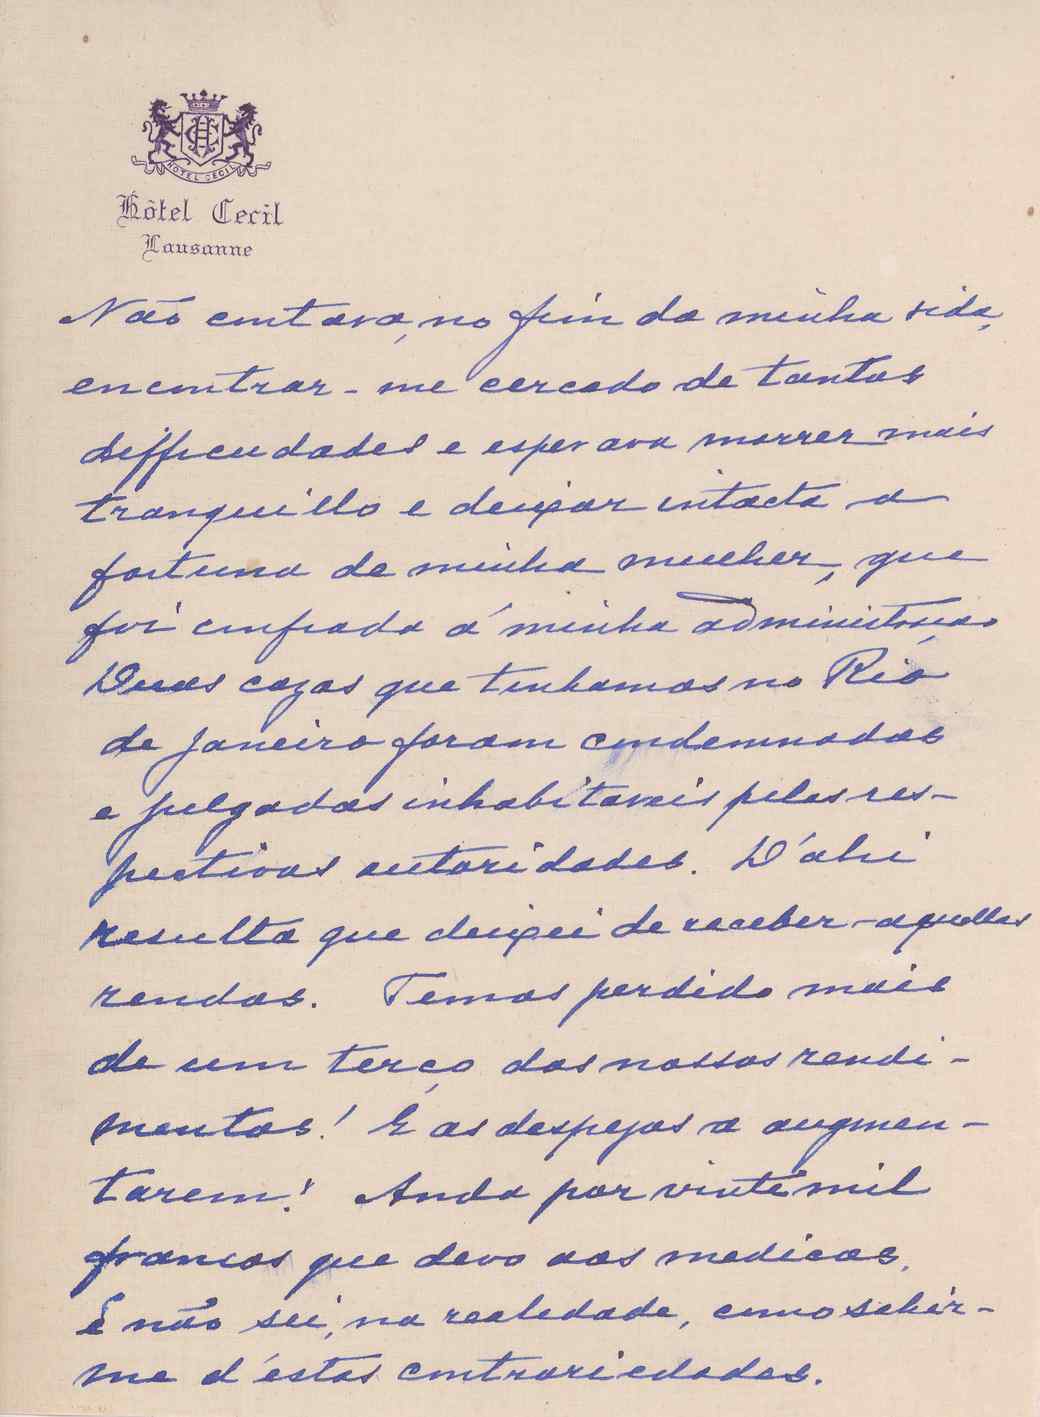 HOTEL CECIL
Hôtel Cecil
Lausanne
Não contava, no fim da minha vida,
encontrar-me cercado de tantas
difficuldades e esperava morrer mais
tranquillo e deixar intacta a
fortuna de minha mulher, que
foi confiada á minha administração
Duas cazas que tinhamos no Rio
de Janeiro foram condemnadas
e julgadas inhabitaveis pelas res-
pectivas autoridades. D'ahi
resulta que deixei de receber aquellas
rendas. Temos perdido mais
de um terço dos nossos rendi-
mentos! E as despezas a augmen-
tarem! Anda por vinte mil
francos que devo aos medicos.
E não sei, na realidade, como sahir-
me d'estas contrariedades.